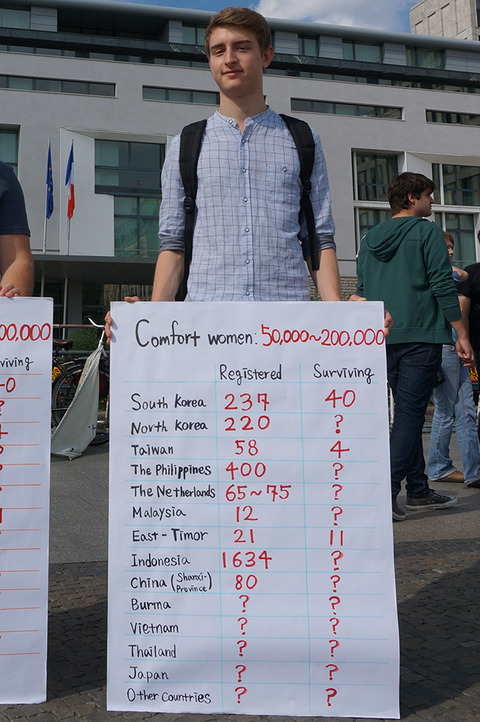 00,000
viving
Comfort women: 50,000~200,000
Registered Surviving
South Korea 237 40
North Korea 220 ?
Taiwan 58 4
The Philippines 400 ?
The Netherlands 65~75 ?
Malaysia 12 ?
East-Timor 21 11
Indonesia 1634 ?
China (Shanxi-Province) 80 ?
Burma ? ?
Vietnam ? ?
Thailand ? ?
Japan ? ?
Other Countries ? ?